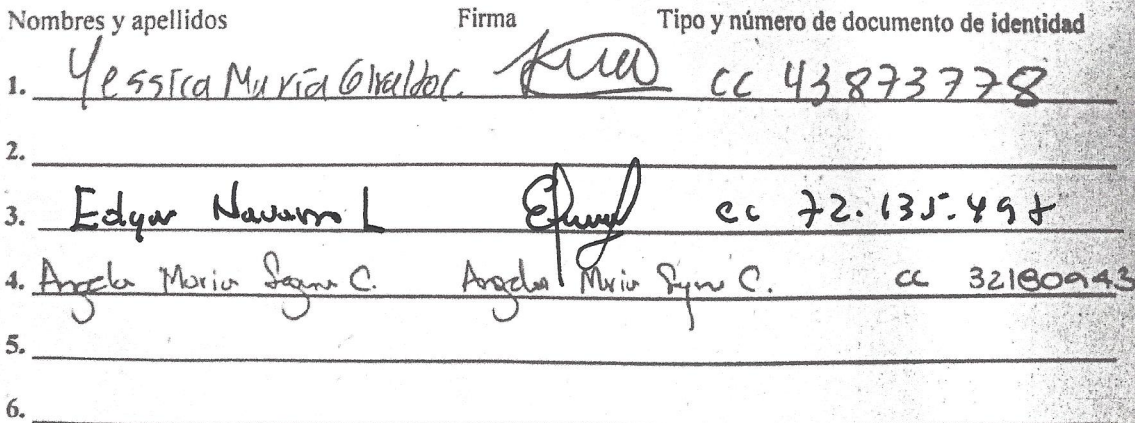 Nombres y apellidos Firma Tipo y número de documento de identidad
1. Yessica María Giraldo C. cc 43873778
2.
3. Edgar Navarro L cc 72.135.497
4. Angela Maria C. Angela Maria C. cc 32180943
5.
6.